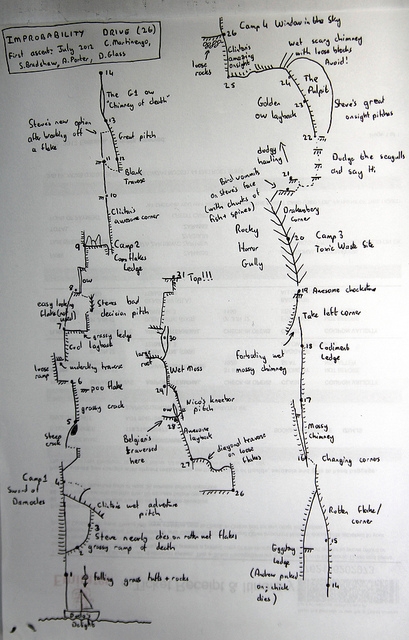 IMPROBABILITY DRIVE (26)
First ascent: July 2012 C. Martinengo,
S. Bradshaw, A. Porter, D. Glass
14
The G1 ow
"Chimney of death"
13
Steve's new option
after backing off
a flake
Great pitch
11
12
Black
Traverse
10
Clinton's
awesome corner
9
Camp 2
Cornflakes
Ledge
ow
8
easy looking
flake (not used)
Steves bad
decision pitch
7
grassy ledge
Cool layback
loose
ramp
undercling traverse
6
poo flake
grassy crack
5
Steep
crack
Camp 1
Sword of
Damocles
4
Clinton's wet adventure
pitch
3
Steve nearly dies on rotten wet flakes
grassy ramp of death
1
2
falling grass tufts + rocks
Delight
31 Top!!!
30
loose
rock
Wet Moss
29
Nico's kneebar
pitch
ow
28
Belgians
traversed
here
Awesome
layback
27
diagonal traverse
on loose
flakes
26
26
Camp 4 Window in the Sky
loose
rocks
Clinton's
amazing
onsight
25
wet scary chimney
with loose blocks
Avoid!
24
The
Pulpit
23
Golden
ow layback
Steve's great
onsight pitches
22
dodgy
hauling!
Dodge the seagulls
and say Hi.
21
Bird vommits
on steve's face
(with chunks of
fish + spines)
Drakensberg
Corner
Rocky
Horror
Gully
20
Camp 3
Toxic Waste Site
19
Awesome chockstone
Take left corner
18
Codiment
Ledge
Foreboding wet
mossy chimney
17
Mossy
chimney
16
Changing corners
Rotten flake/
corner
Eggyboy
Ledge
(Andrew puked
on; chick
dies)
15
14